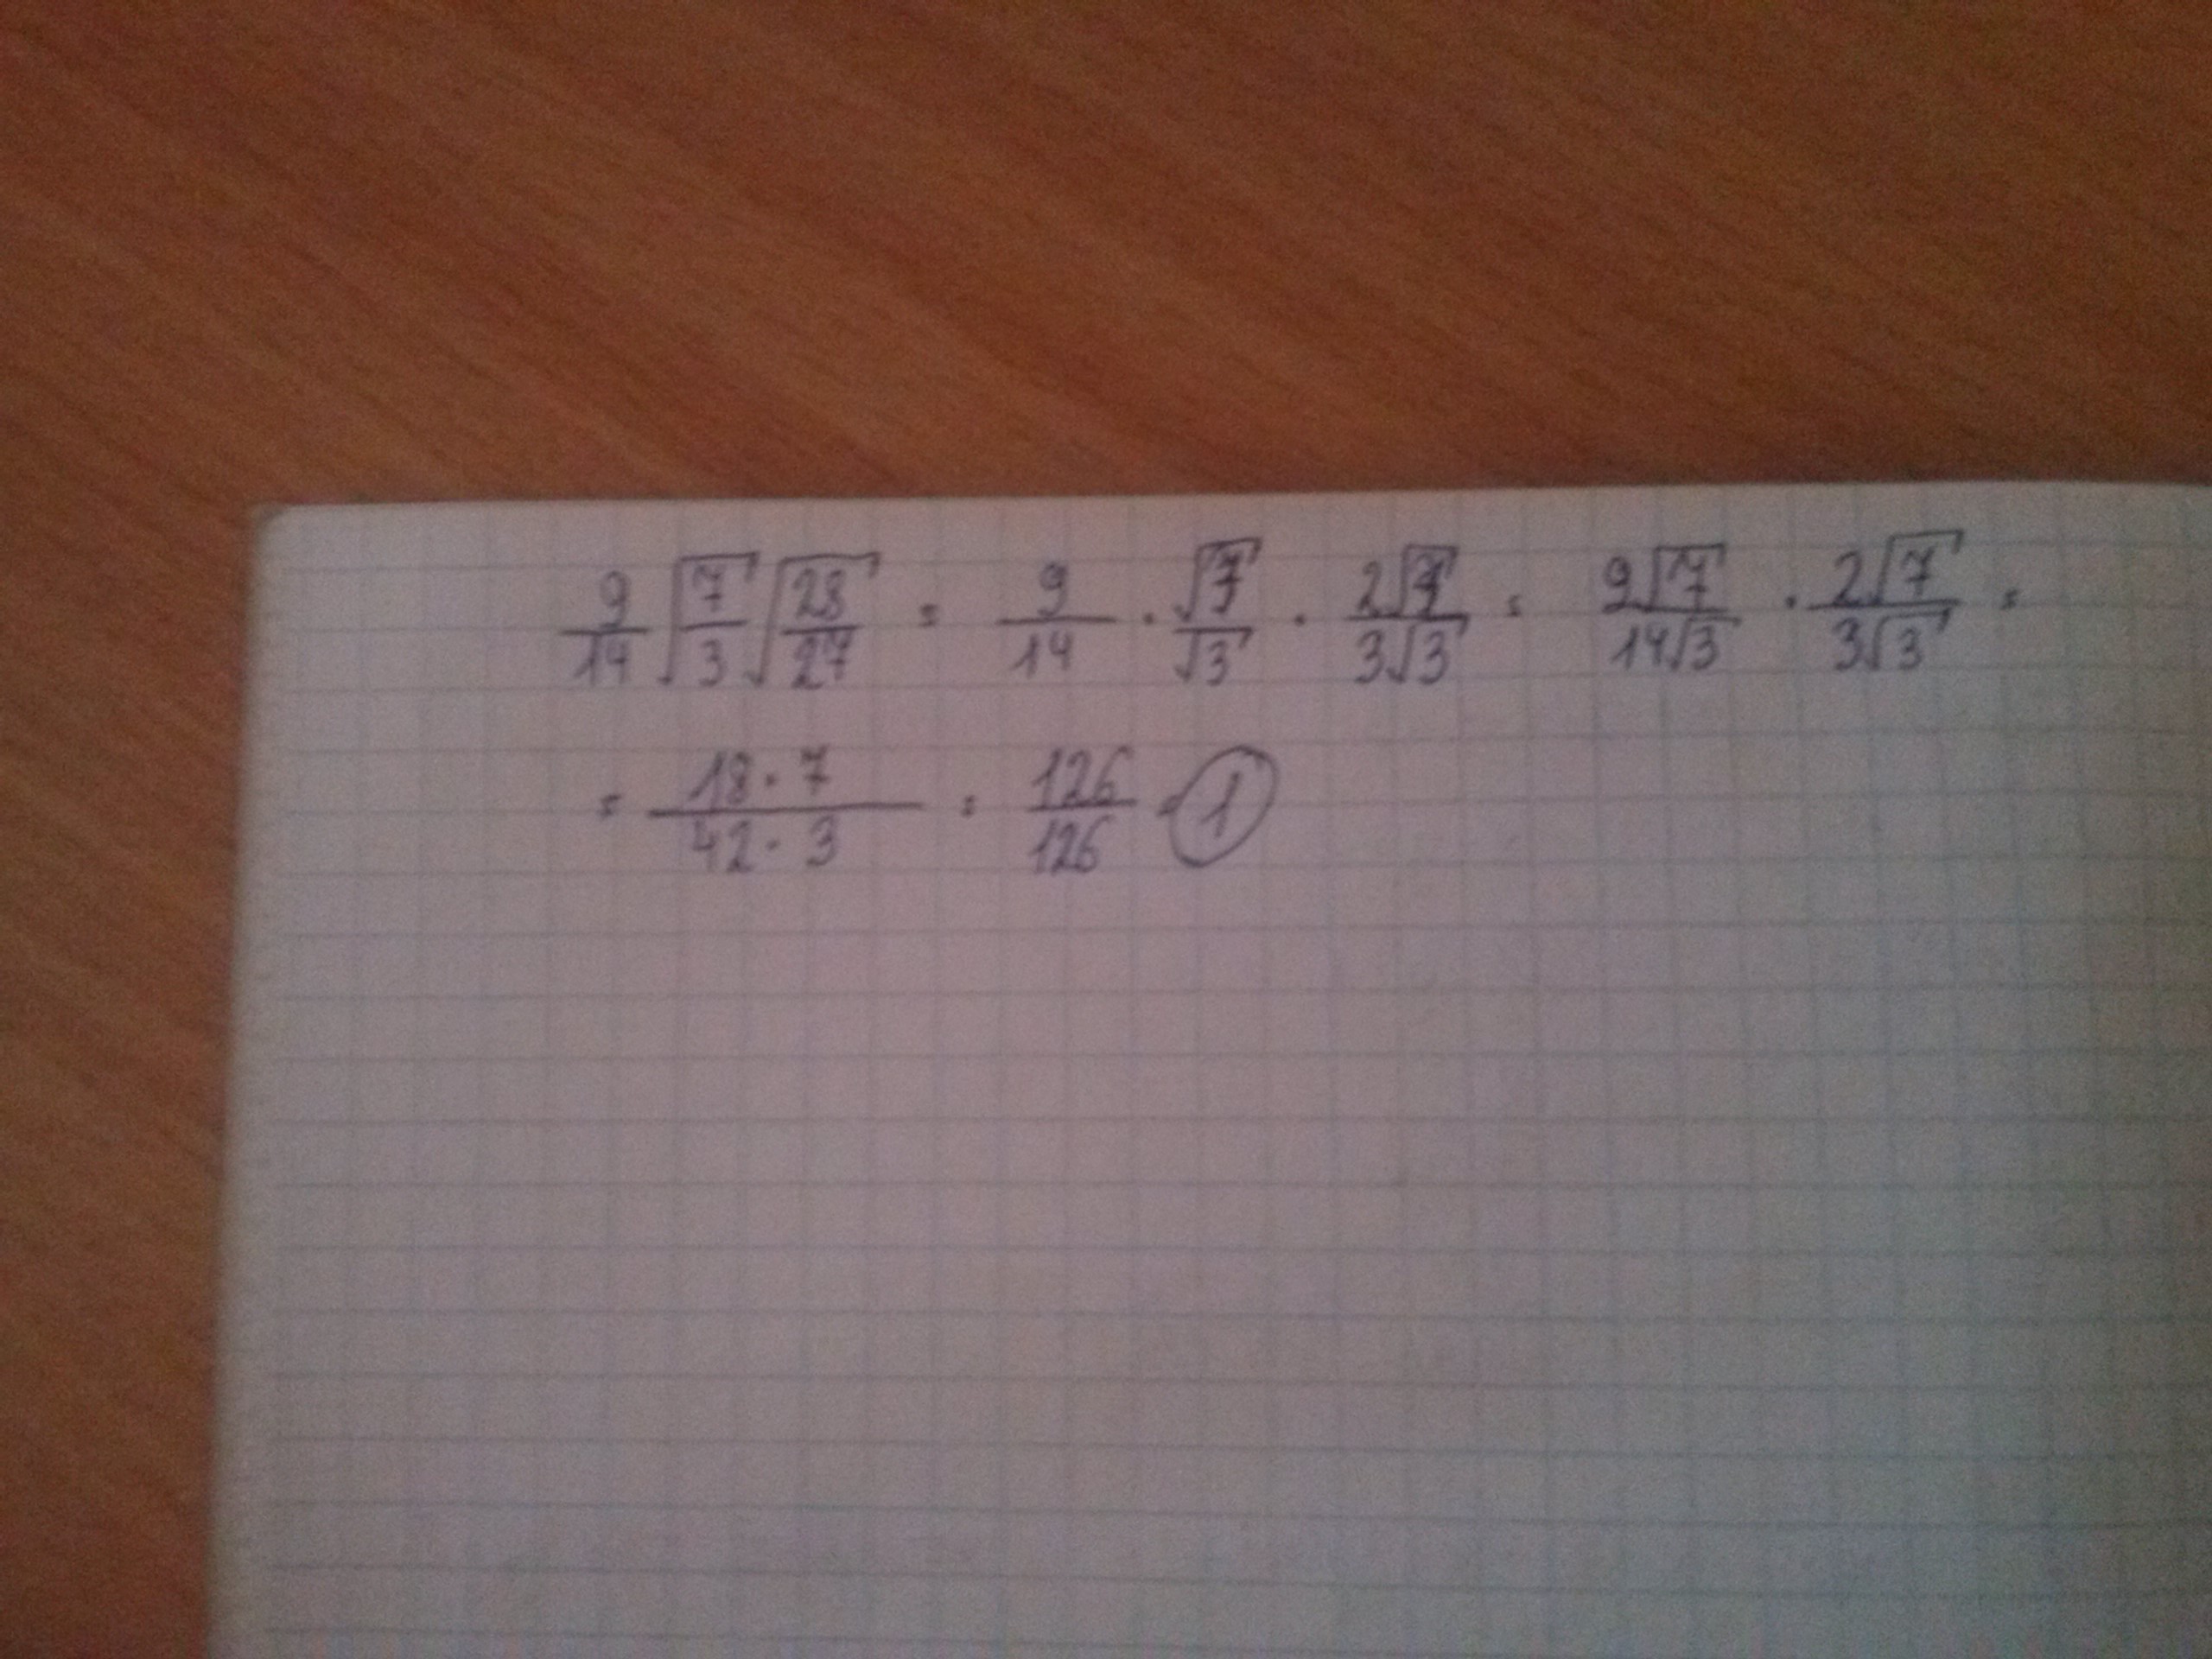 9/14 √(7/3) √(28/27) = 9/14 · √7/√3 · 2√7/3√3 = 9√7/14√3 · 2√7/3√3 =
= 18·7/42·3 = 126/126 = 1